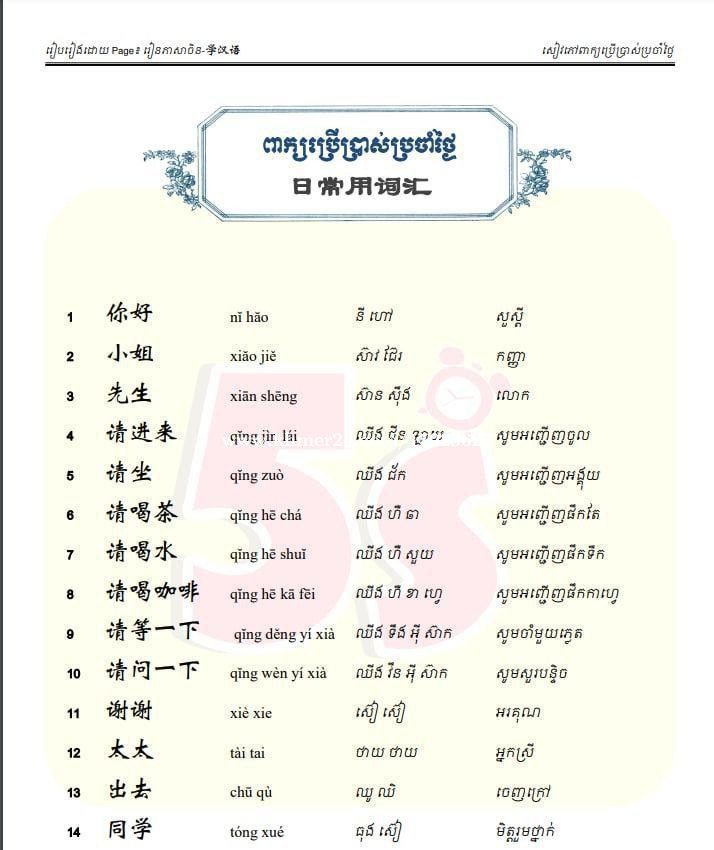 រៀបរៀងដោយ Page៖ រៀនភាសាចិន-学汉语 សៀវភៅពាក្យប្រើប្រាស់ប្រចាំថ្ងៃ
ពាក្យប្រើប្រាស់ប្រចាំថ្ងៃ
日常用词汇
1 你好 nǐ hǎo នី ហៅ សួស្តី
2 小姐 xiǎo jiě ស៊ាវ ជ៊ែរ កញ្ញា
3 先生 xiān shēng ស៊ាន ស៊ឹង លោក
4 请进来 qǐng jìn lái ឈីង ជីន ឡាយ សូមអញ្ជើញចូល
5 请坐 qǐng zuò ឈីង ជ័ក សូមអញ្ជើញអង្គុយ
6 请喝茶 qǐng hē chá ឈីង ហឺ ឆា សូមអញ្ជើញផឹកតែ
7 请喝水 qǐng hē shuǐ ឈីង ហឺ សួយ សូមអញ្ជើញផឹកទឹក
8 请喝咖啡 qǐng hē kā fēi ឈីង ហឺ ខា ហ្វេ សូមអញ្ជើញផឹកកាហ្វេ
9 请等一下 qǐng děng yí xià ឈីង ទឹង អ៊ី ស៊ាក សូមចាំមួយភ្លេត
10 请问一下 qǐng wèn yí xià ឈីង វឺន អ៊ី ស៊ាក សូមសួរបន្តិច
11 谢谢 xiè xie ស៊ៀ ស៊ៀ អរគុណ
12 太太 tài tai ថាយ ថាយ អ្នកស្រី
13 出去 chū qù ឈូ ឈិ ចេញក្រៅ
14 同学 tóng xué ធុង ស៊ៀ មិត្តរួមថ្នាក់
5s